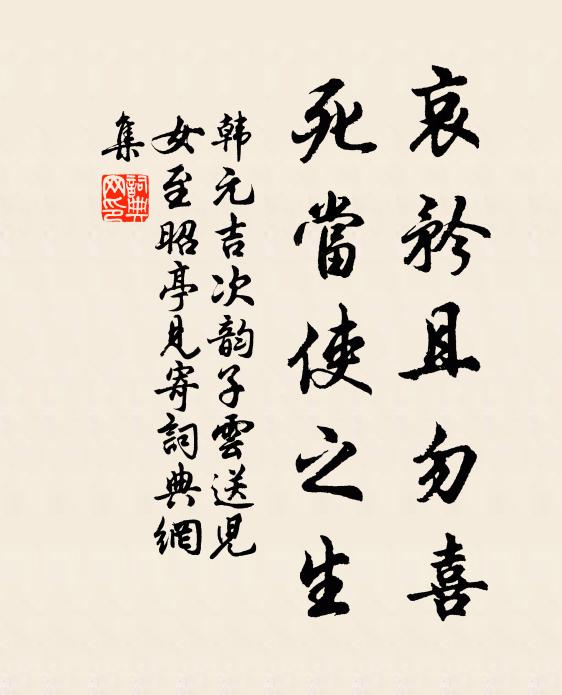 哀矜且勿喜
死當使之生
韩元吉次韵子雲送児
女至昭亭見寄詞典網
集
詞典
网印